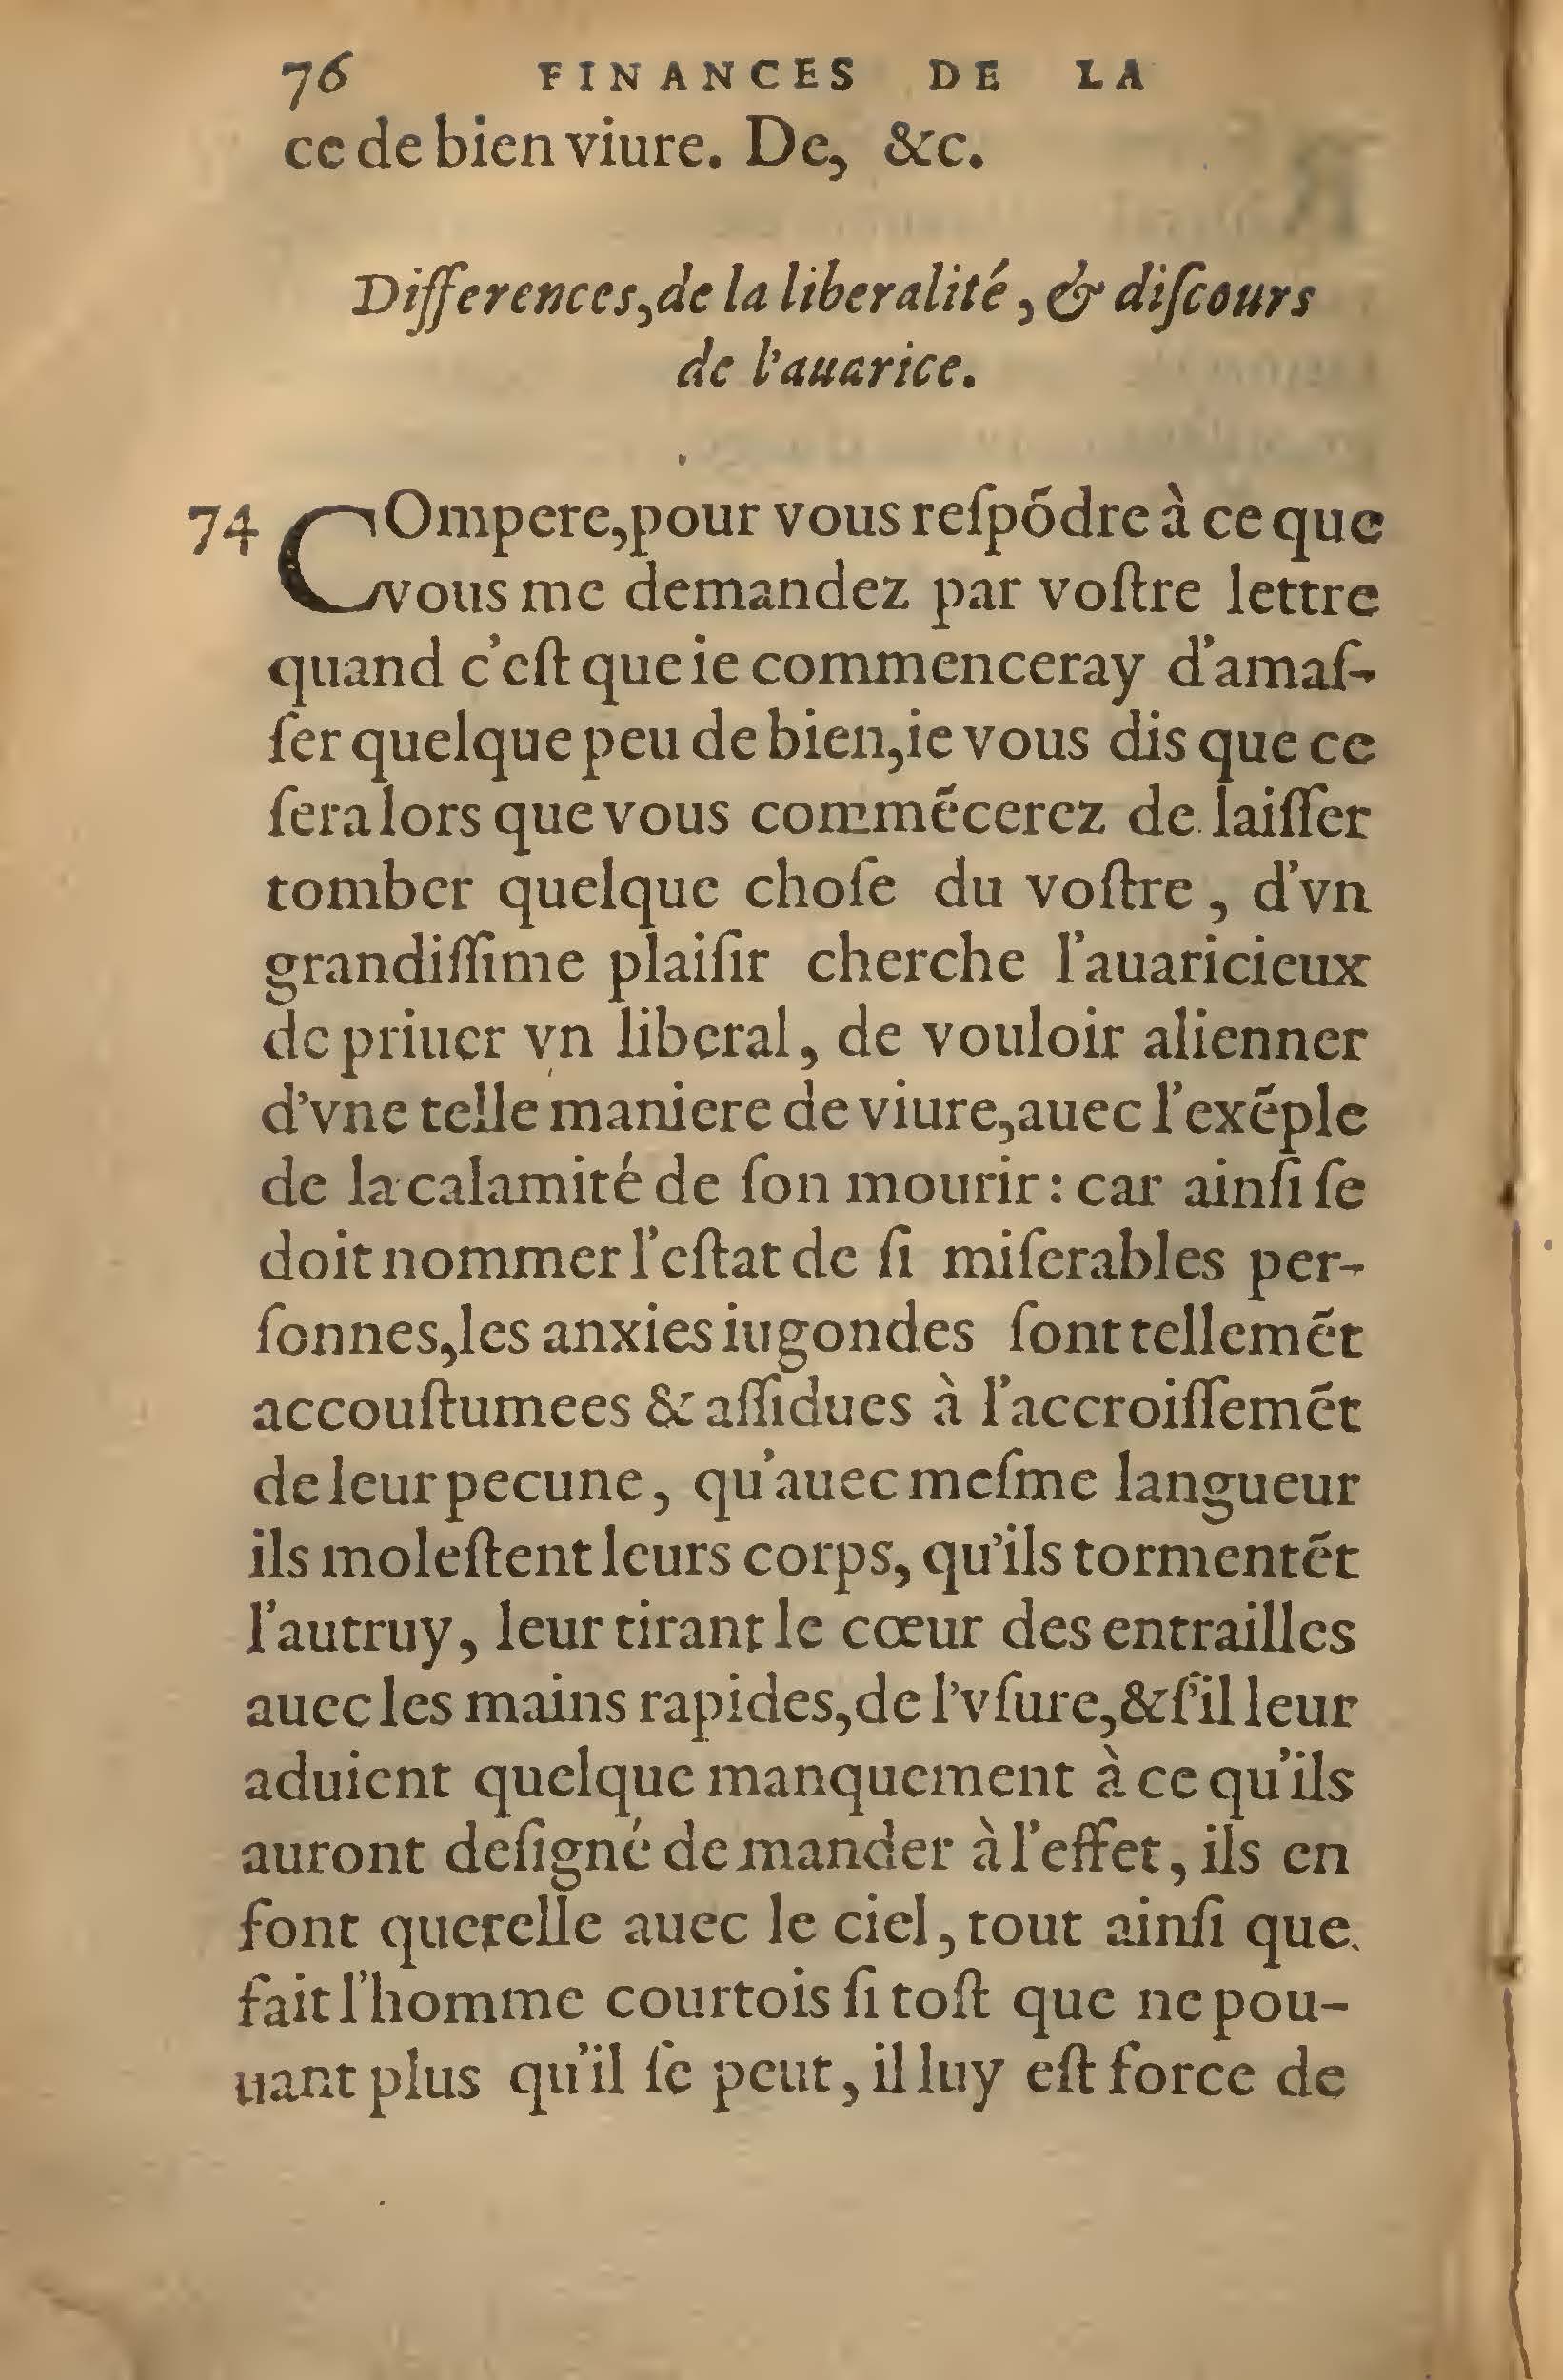 76 FINANCES DE LA
ce de bien viure. De, &c.
Differences, de la liberalité, & diſcours
de l'auarice.
74 COmpere, pour vous reſpõdre à ce que
vous me demandez par voſtre lettre
quand c'eſt que ie commenceray d'amaſ-
ſer quelque peu de bien, ie vous dis que ce
ſera lors que vous commẽcerez de laiſſer
tomber quelque choſe du voſtre, d'vn
grandiſſime plaiſir cherche l'auaricieux
de priuer vn liberal, de vouloir alienner
d'vne telle maniere de viure, auec l'exẽple
de la calamité de ſon mourir : car ainſi ſe
doit nommer l'eſtat de ſi miſerables per-
ſonnes, les anxies iugondes ſont tellemẽt
accouſtumees & aſſidues à l'accroiſſemẽt
de leur pecune, qu'auec meſme langueur
ils moleſtent leurs corps, qu'ils tormentẽt
l'autruy, leur tirant le cœur des entrailles
auec les mains rapides, de l'vſure, & ſ'il leur
aduient quelque manquement à ce qu'ils
auront deſigné de mander à l'effet, ils en
font querelle auec le ciel, tout ainſi que
fait l'homme courtois ſi toſt que ne pou-
uant plus qu'il ſe peut, il luy eſt force de